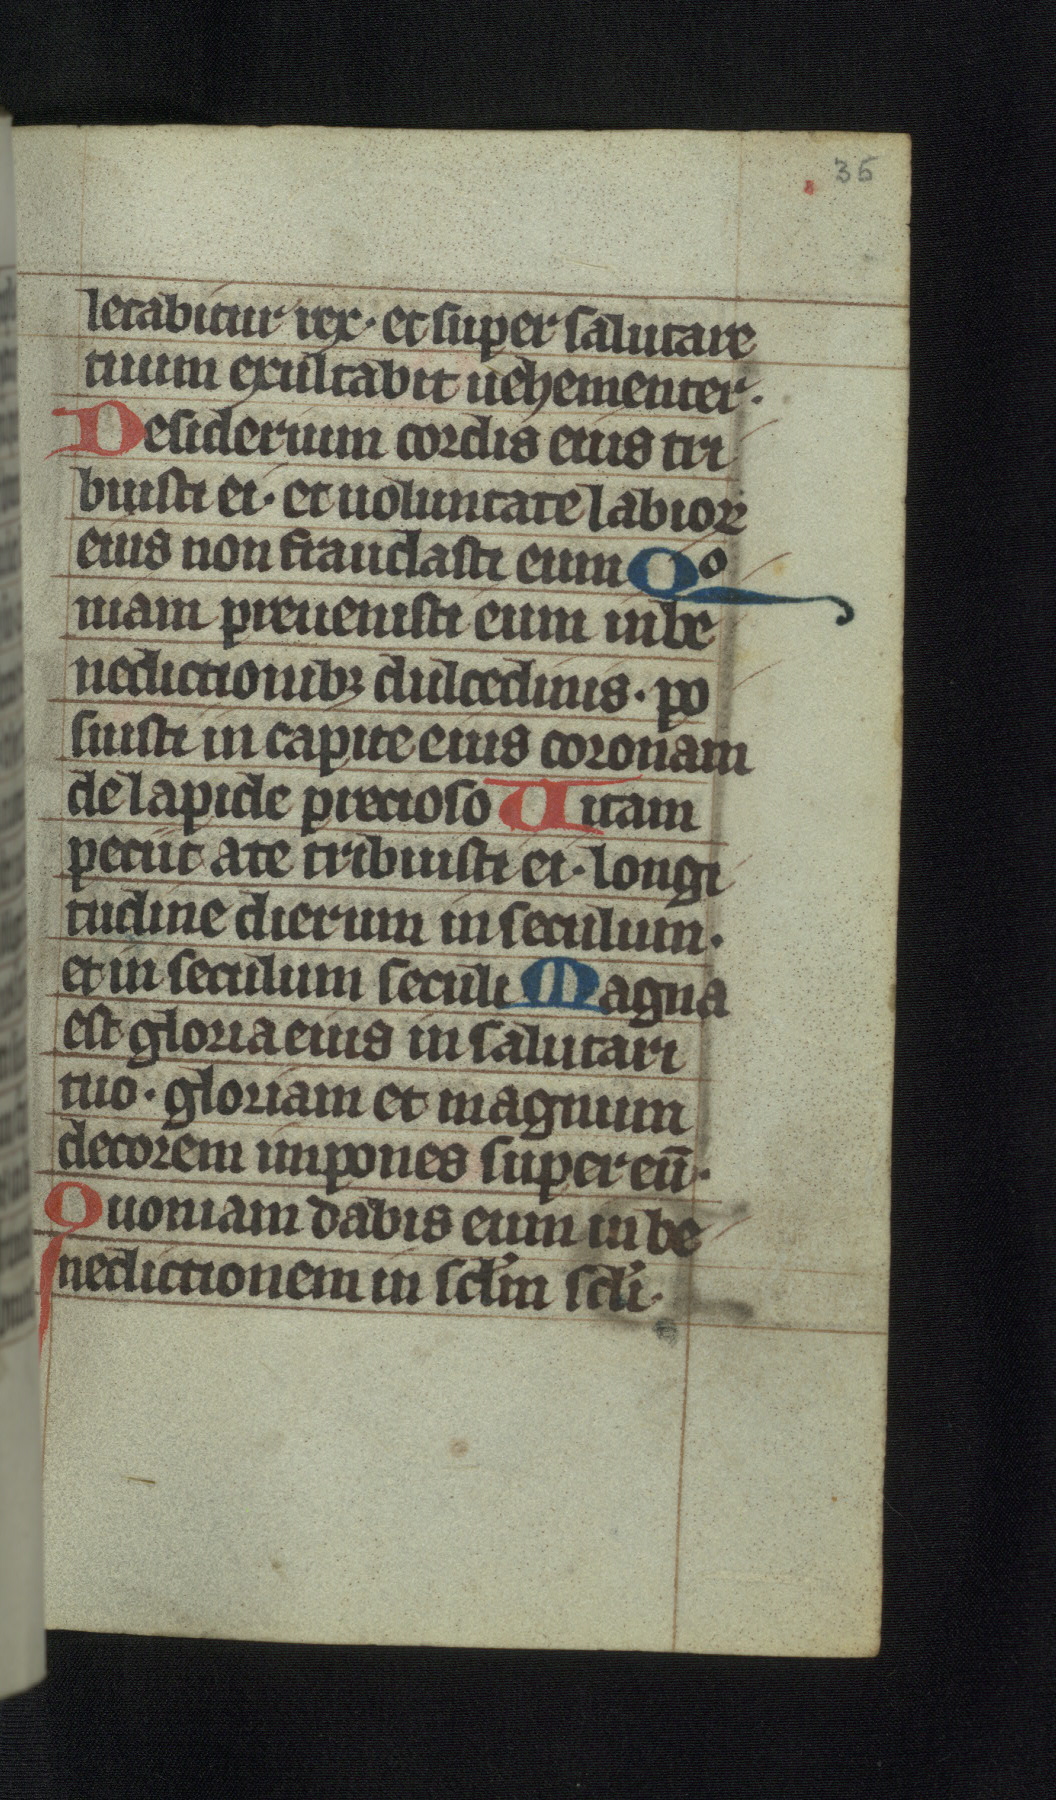 35
letabitur rex· et super salutare
tuum exultabit uehementer·
Desiderium cordis eius tri
buisti ei· et uoluntate labioꝝ
eius non fraudasti eum Qͦ
niam preuenisti eum in be
nedictionibꝫ dulcedinis· po
suisti in capite eius coronam
de lapide precioso Uitam
petiit ate tribuisti ei· longi
tudine dierum in seculum·
et in seculum seculi Magna
est gloria eius in salutari
tuo· gloriam et magnum
decorem impones super eū·
Quoniam dabis eum in be
nedictionem in scłm scłi·